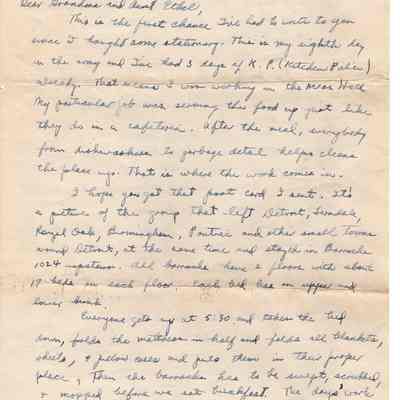 Dear Grandma and Aunt Ethel,
This is the first chance I've had to write to you
since I bought some stationery. This is my eighth day
in the army and I've had 3 days of K.P. (Kitchen Police)
already. That means I was working in the Mess Hall
My particular job was serving the food up just like
they do in a cafeteria. After the meal, everybody
from dishwashers to garbage detail helps clean
the place up. That is where the work comes in.
I hope you got that post card I sent. It's
a picture of the group that left Detroit, Ferndale,
Royal Oak, Birmingham, Pontiac and other small towns
around Detroit, at the same time and stayed in Barracks
1024 upstairs. All barracks have 2 floors with about
19 beds on each floor. Each bed has an upper and
lower bunk.
Everyone gets up at 5:30 and takes the bed
down, folds the mattress in half and folds all blankets,
sheets, & pillow cases and puts them in their proper
place, Then the barracks has to be swept, scrubbed,
& mopped before we eat breakfast. The days' work